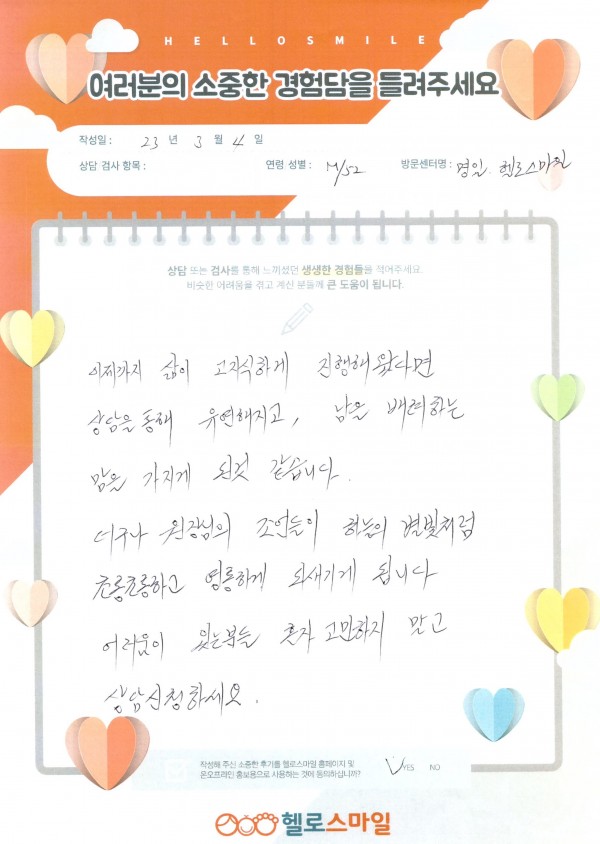 HELLOSMILE
여러분의 소중한 경험담을 들려주세요
작성일 : 23 년 3 월 4 일
상담 검사 항목 : 연령 성별 : M/52 방문센터명 : 명일 헬로스마일
상담 또는 검사를 통해 느끼셨던 생생한 경험들을 적어주세요.
비슷한 어려움을 겪고 계신 분들께 큰 도움이 됩니다.
이제까지 삶이 고지식하게 진행해 왔다면
상담을 통해 유연해지고, 남을 배려하는
맘을 가지게 된것 같습니다.
더구나 원장님의 조언들이 하늘의 별빛처럼
초롱초롱하고 영롱하게 되새기게 됩니다
어려움이 있는분들 혼자 고민하지 말고
상담신청하세요.
작성해 주신 소중한 후기를 헬로스마일 홈페이지 및
온오프라인 홍보용으로 사용하는 것에 동의하십니까?
YES NO
헬로스마일